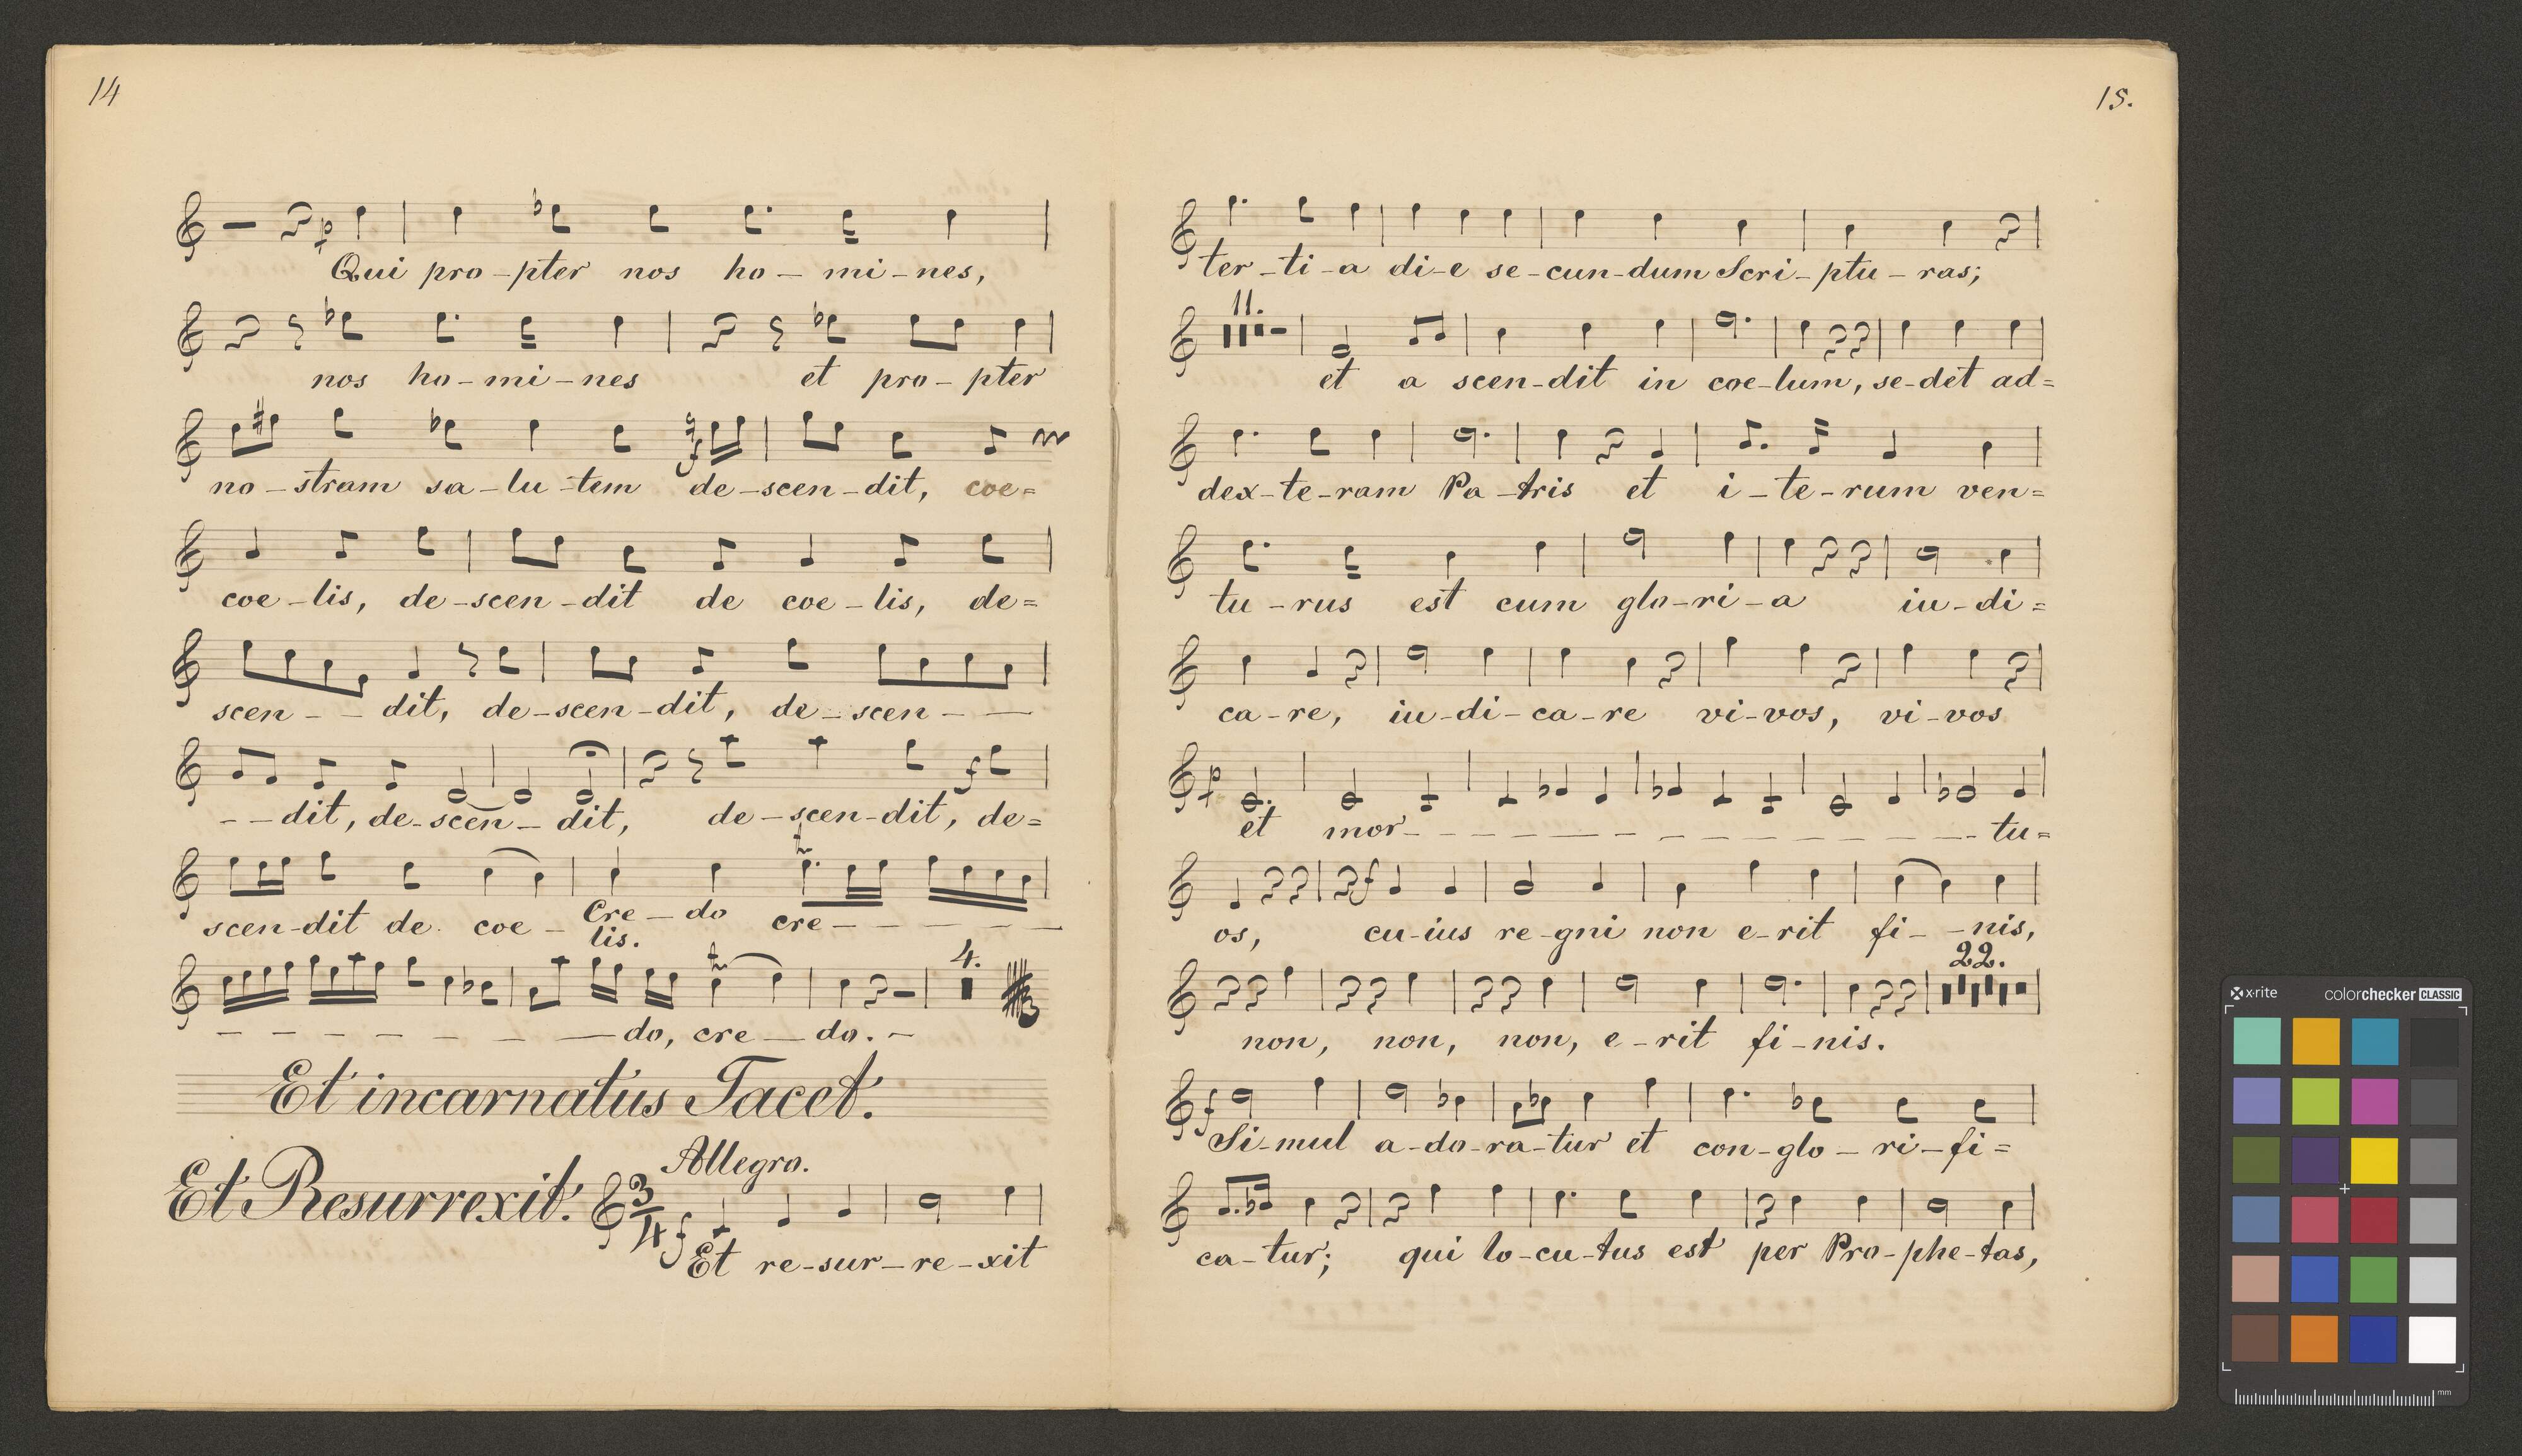 14
Qui pro-pter nos ho-mi-nes,
nos ho-mi-nes et pro-pter
no-stram sa-lu-tem de-scen-dit, coe=
f
coe-lis, de-scen-dit de coe-lis, de=
scen-- dit, de-scen-dit, de-scen--
f
--dit, de-scen-dit, de-scen-dit, de=
scen-dit de coe- Cre-do cre-----
lis.
4.
-------do, cre-do.-
3
Et incarnatus Tacet.
Allegro.
Et Resurrexit. 3/4 f
Et re-sur-re-xit
15.
ter-ti-a di-e se-cun-dum Scri-ptu-ras;
11.
et a scen-dit in coe-lum, se-det ad=
dex-te-ram Pa-tris et i-te-rum ven=
tu-rus est cum glo-ri-a iu-di=
ca-re, iu-di-ca-re vi-vos, vi-vos
p
et mor------------tu=
f
os, cu-ius re-gni non e-rit fi--nis,
22.
non, non, non, e-rit fi-nis.
f
Si-mul a-do-ra-tur et con-glo-ri-fi=
ca-tur; qui lo-cu-tus est per Pro-phe-tas,
x-rite colorchecker CLASSIC
mm